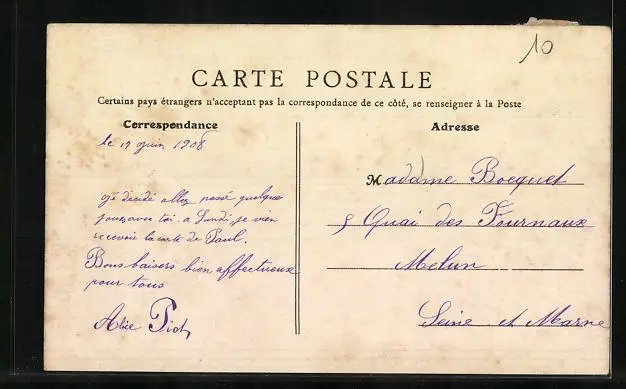 10
CARTE POSTALE
Certains pays étrangers n'acceptant pas la correspondance de ce côté, se renseigner à la Poste
Correspondance
Adresse
le 19 juin 1908
décidé allez passé quelque
jours avec toi. a Lundi, je vien
recevoir la carte de Paul.
Bons baisers bien affectueux
pour tous
Alice Piot
Madame Bocquet
5 Quai des Fournaux
Melun
Seine et Marne